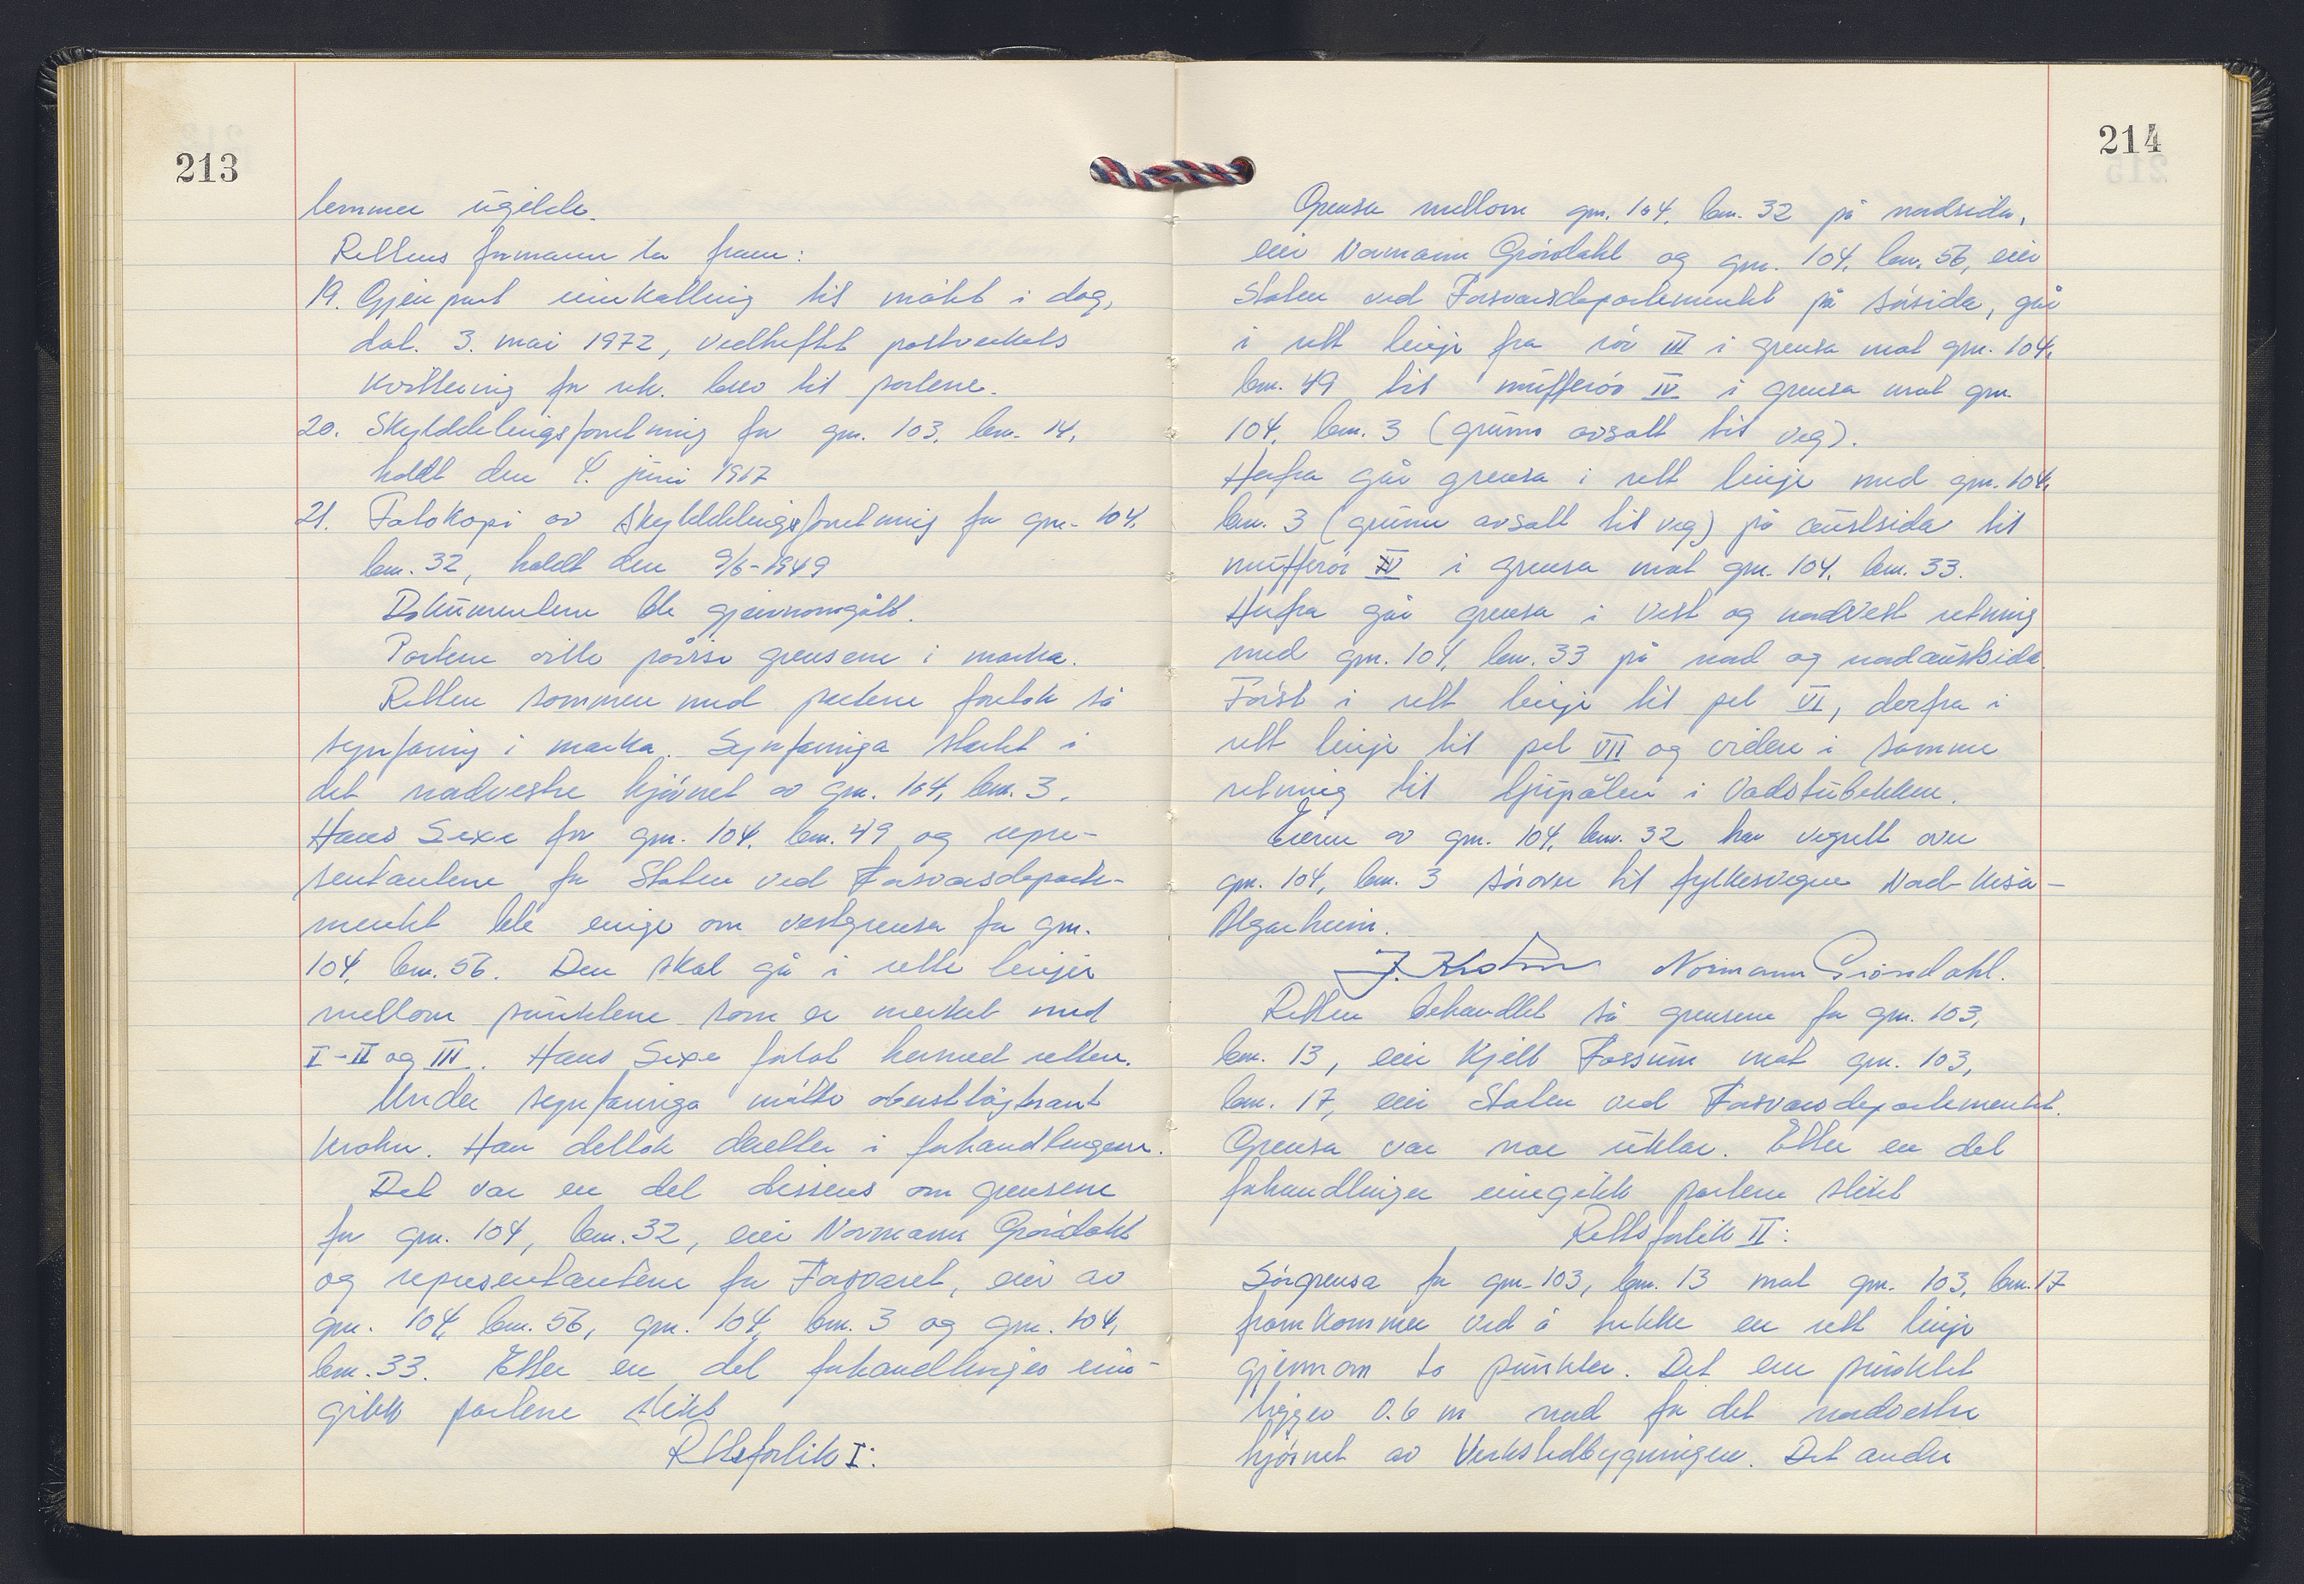 213
lemmer ugilde.
Rettens formann la fram:
19. Gjenpart innkalling til møtet i dag,
dat. 3. mai 1972, vedheftet postverkets
kvittering for rek. brev til partene.
20. Skylddelingsforretning for gnr. 103, bnr. 14,
holdt den 4. juni 1917
21. Fotokopi av skylddelingsforretning for gnr. 104,
bnr. 32, holdt den 9/6-1949
Dokumentene ble gjennomgått.
Partene ville påvise grensene i marka.
Retten sammen med partene foretok så
synfaring i marka. Synfaringa startet i
det nordvestre hjørnet av gnr. 104, bnr. 3.
Hans Sexe for gnr. 104, bnr. 49 og repre-
sentantene for Staten ved Forsvarsdeparte-
mentet ble enige om vestgrensa for gnr.
104, bnr. 56. Den skal gå i rette linjer
mellom punktene som er merket med
I - II og III. Hans Sexe forlot hermed retten.
Under synfaringa møtte oberstløytnant
Krohn. Han deltok deretter i forhandlingene.
Det var en del dissens om grensene
for gnr. 104, bnr. 32, eier Normann Grøndahl
og representantene for Forsvaret, eier av
gnr. 104, bnr. 56, gnr. 104, bnr. 3 og gnr. 104,
bnr. 33. Etter en del forhandlinger inn-
gikk partene slikt
Rettsforlik I:
214
Grensa mellom gnr. 104, bnr. 32 på nordsida,
eier Normann Grøndahl og gnr. 104, bnr. 56, eier
Staten ved Forsvarsdepartementet på sørsida, går
i rett linje fra rør III i grensa mot gnr. 104,
bnr. 49 til mufferør IV i grensa mot gnr.
104, bnr. 3 (grunn avsatt til veg).
Herfra går grensa i rett linje med gnr. 104,
bnr. 3 (grunn avsatt til veg) på austsida til
mufferør V i grensa mot gnr. 104, bnr. 33.
Herfra går grensa i vest og nordvest retning
med gnr. 104, bnr. 33 på nord og nordaustsida.
Først i rett linje til pel VI, derfra i
rett linje til pel VII og videre i samme
retning til djupålen i Vadstubekken.
Eieren av gnr. 104, bnr. 32 har vegrett over
gnr. 104, bnr. 3 sørover til fylkesvegen Nord-Kisa -
Algarheim.
J. Krohn Normann Grøndahl.
Retten behandlet så grensene for gnr. 103,
bnr. 13, eier Kjell Fossum mot gnr. 103,
bnr. 17, eier Staten ved Forsvarsdepartementet.
Grensa var noe uklar. Etter en del
forhandlinger inngikk partene slikt
Rettsforlik II:
Sørgrensa for gnr. 103, bnr. 13 mot gnr. 103, bnr. 17
framkommer ved å trekke en rett linje
gjennom to punkter. Det ene punktet
ligger 0.6 m nord for det nordvestre
hjørnet av Verkstedbygningen. Det andre